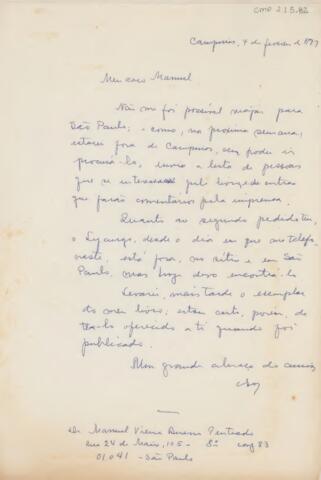 CMP 2.1.5.82
Campinas, 4 de fevereiro de 1977
Meu caro Manuel
Não me foi possível viajar para
São Paulo; e como, na próxima semana,
estarei fora de Campinas, sem poder ir
procurá-lo, envio a lista de pessoas
que se interessam pelo livro, e de outras
que farão comentários pela imprensa.
Quanto ao segundo pedido teu,
o Lycurgo, desde o dia em que me telefo-
naste, está fora, no sítio e em São
Paulo, mas hoje devo encontrá-lo
Levarei, mais tarde o exemplar
do meu livro; estou certo, porém, de
tê-lo oferecido a ti quando foi
publicado.
Um grande abraço do amigo
Dr. Manuel Vieira Bueno Penteado
Rua 24 de Maio, 105 - 8º conj 83
01041 - São Paulo